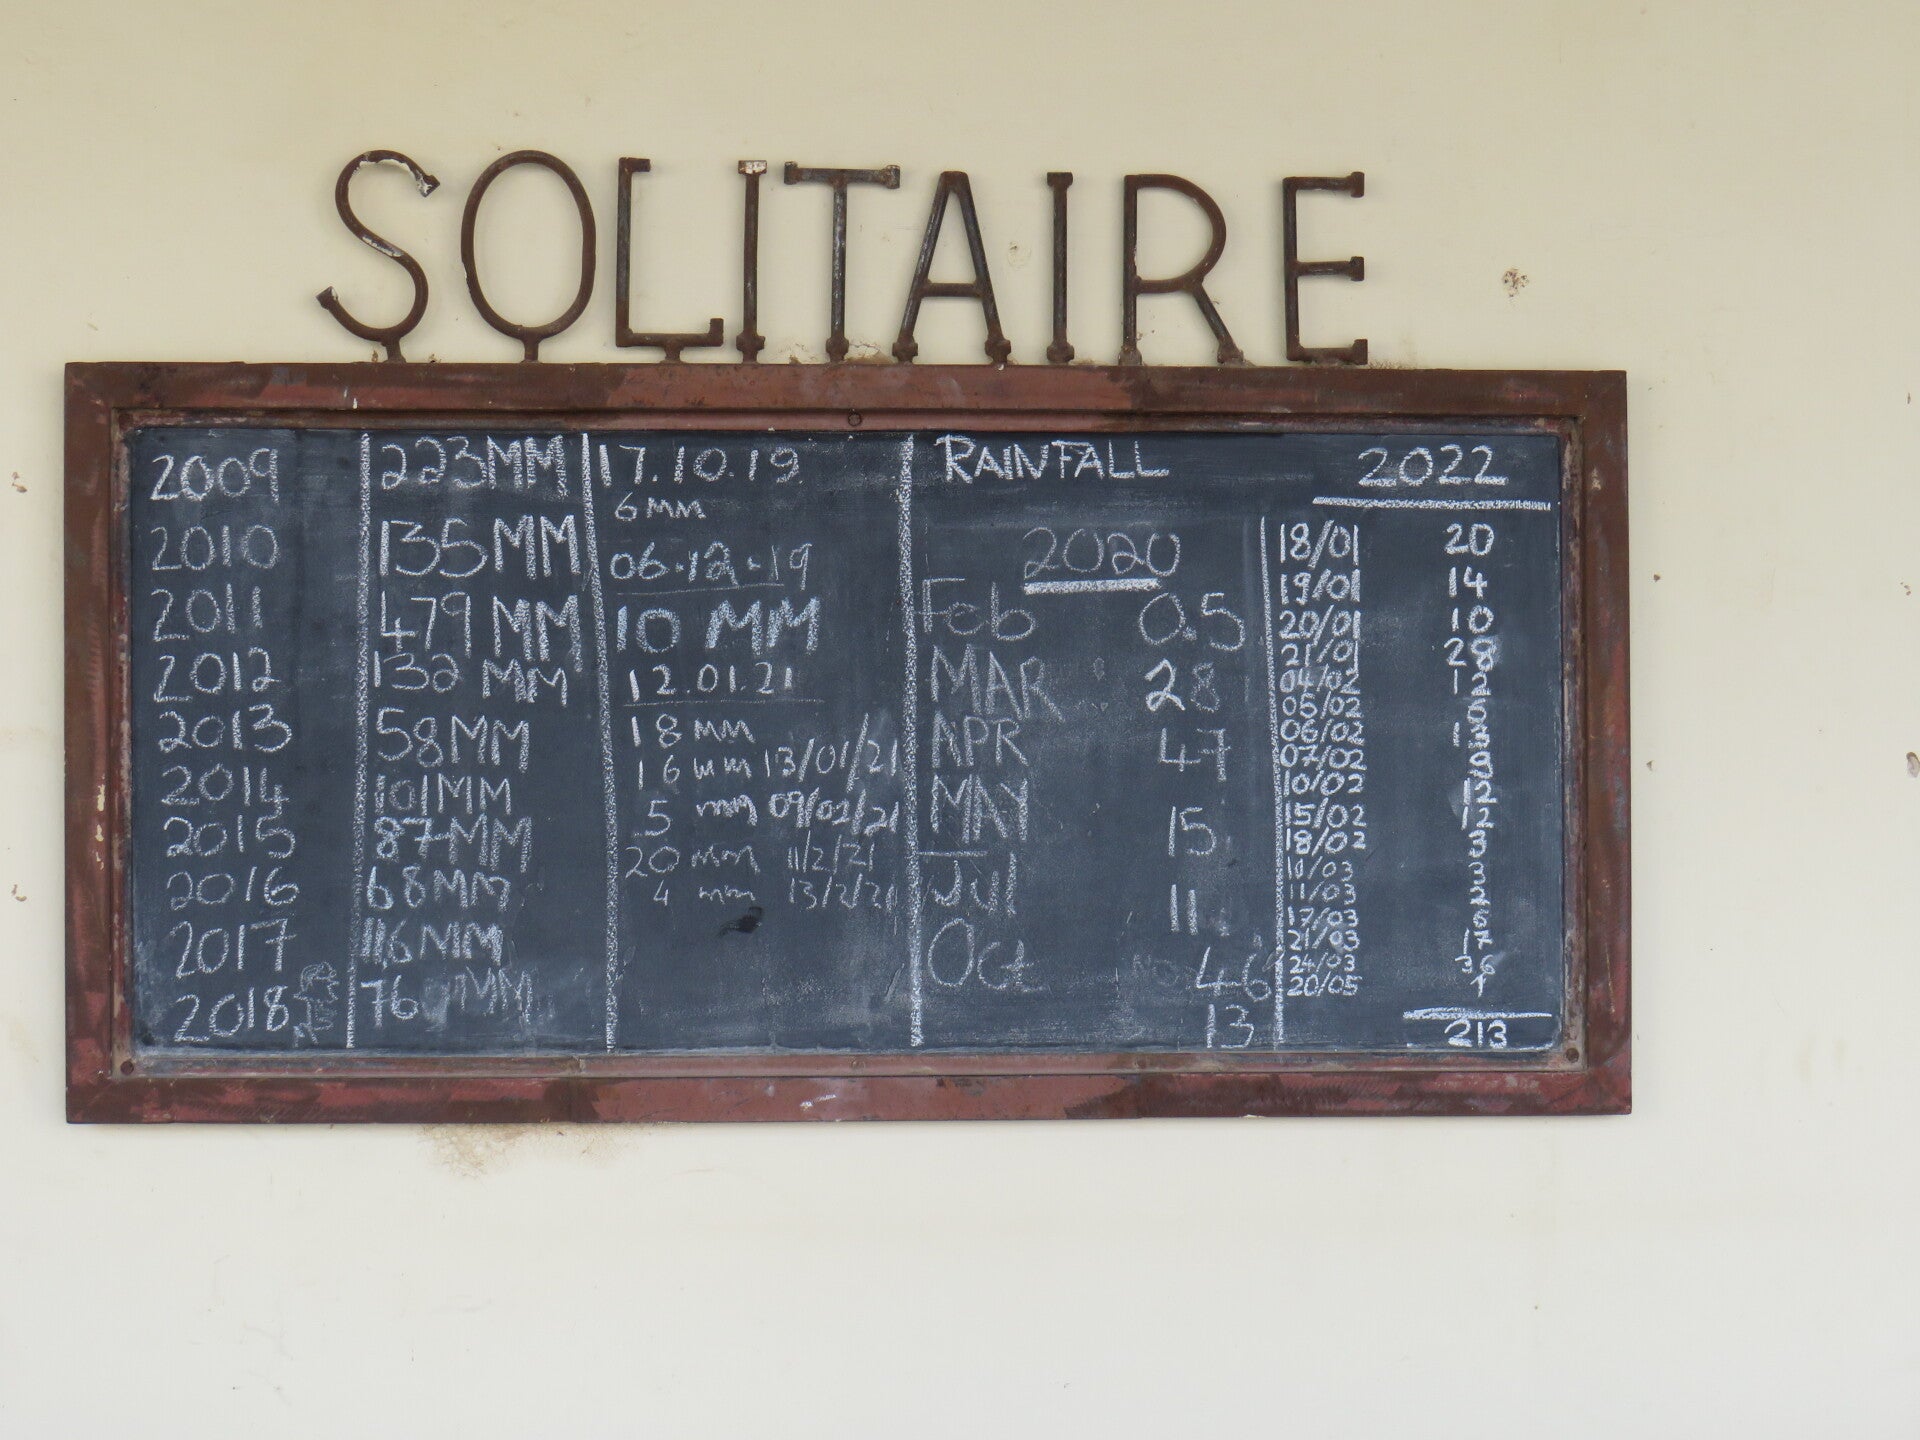 SOLITAIRE
2009 223MM
2010 135MM
2011 479 MM
2012 132 MM
2013 58MM
2014 101MM
2015 87MM
2016 68MM
2017 116MM
2018 76 MM
17.10.19
6MM
06.12.19
10 MM
12.01.21
18 mm
16 mm 13/01/21
5 mm 09/02/21
20 mm 11/2/21
4 mm 13/2/21
RAINFALL 2022
2020
Feb 0.5
MAR 28
APR 47
MAY 15
Jul 11
Oct 46
13
18/01 20
19/01 14
20/01 10
21/01 28
04/02 12
05/02 6
06/02 13
07/02 9
10/02 12
15/02 12
18/02 3
10/03 3
11/03 2
17/03 6
21/03 17
24/03 36
20/05 1
213